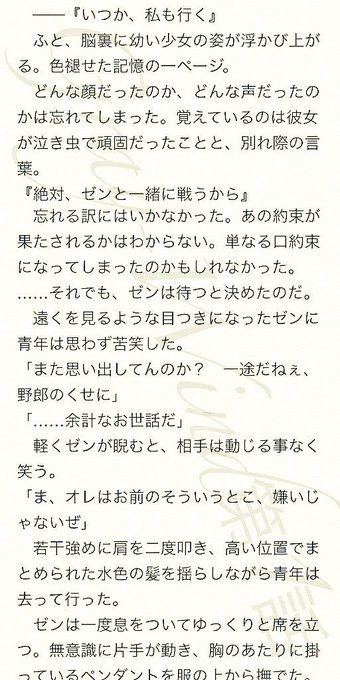 ――『いつか、私も行く』
ふと、脳裏に幼い少女の姿が浮かび上が
る。色褪せた記憶の一ページ。
どんな顔だったのか、どんな声だったの
かは忘れてしまった。覚えているのは彼女
が泣き虫で頑固だったことと、別れ際の言
葉。
『絶対、ゼンと一緒に戦うから』
忘れる訳にはいかなかった。あの約束が
果たされるかはわからない。単なる口約束
になってしまったのかもしれなかった。
……それでも、ゼンは待つと決めたのだ。
遠くを見るような目つきになったゼンに
青年は思わず苦笑した。
「また思い出してんのか？　一途だねぇ、
野郎のくせに」
「……余計なお世話だ」
軽くゼンが睨むと、相手は動じる事なく
笑う。
「ま、オレはお前のそういうとこ、嫌いじ
ゃないぜ」
若干強めに肩を二度叩き、高い位置でま
とめられた水色の髪を揺らしながら青年は
去って行った。
ゼンは一度息をついてゆっくりと席を立
つ。無意識に片手が動き、胸のあたりに掛
っているペンダントを服の上から撫でた。